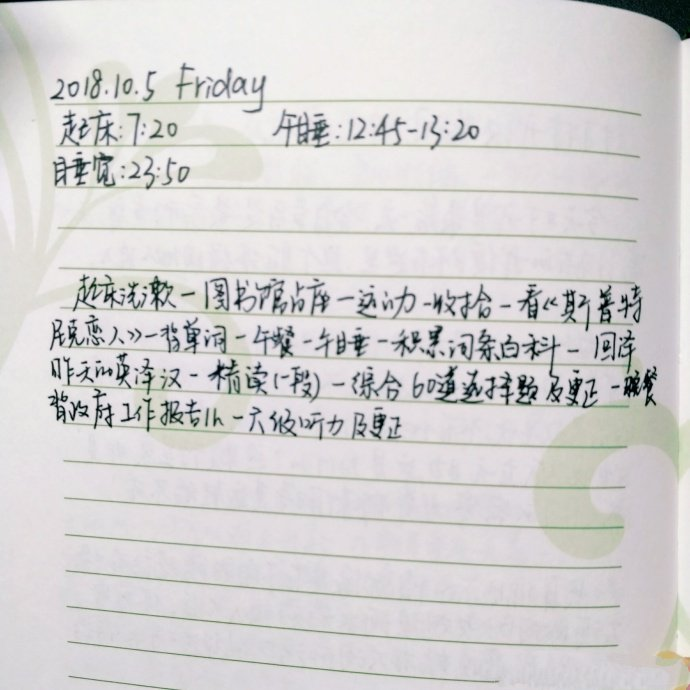 2018.10.5 Friday
起床:7:20 午睡:12:45-13:20
睡觉:23:50
起床洗漱-图书馆占座-运动-收拾-看《斯普特
尼克恋人》-背单词-午餐-午睡-积累词条百科-回译
昨天的英译汉-精读(一段)-综合60道选择题及更正-晚餐
背政府工作报告1h-六级听力及更正